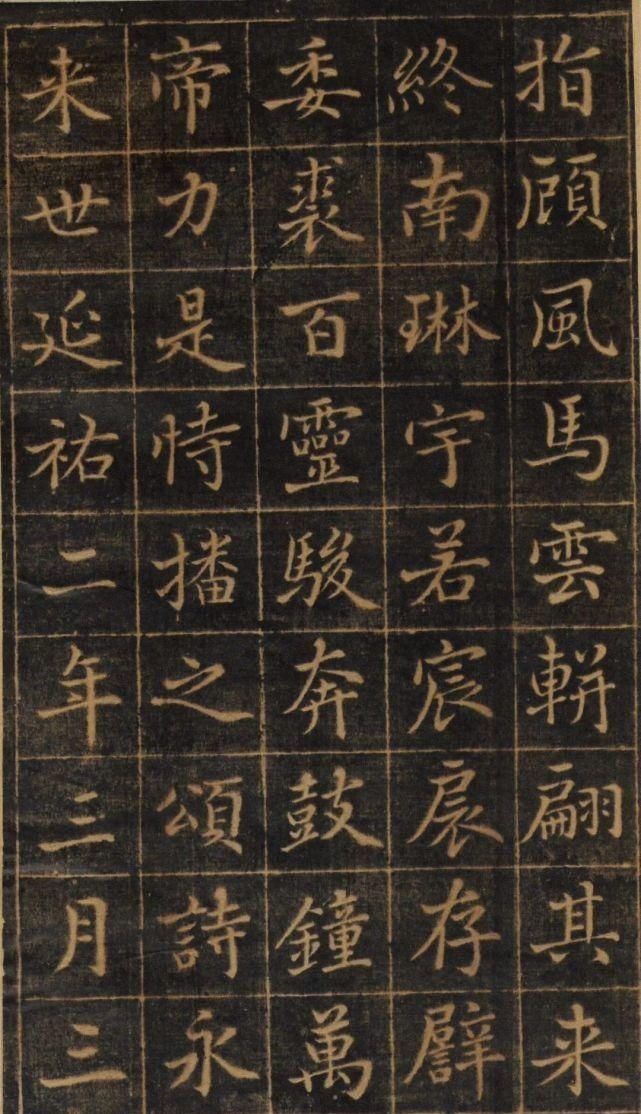 指頋風馬雲軿翩其来
終南琳宇若宸扆存譬
委裘百靈駿奔鼓鐘萬
帝力是恃播之頌詩永
来世延祐二年三月三